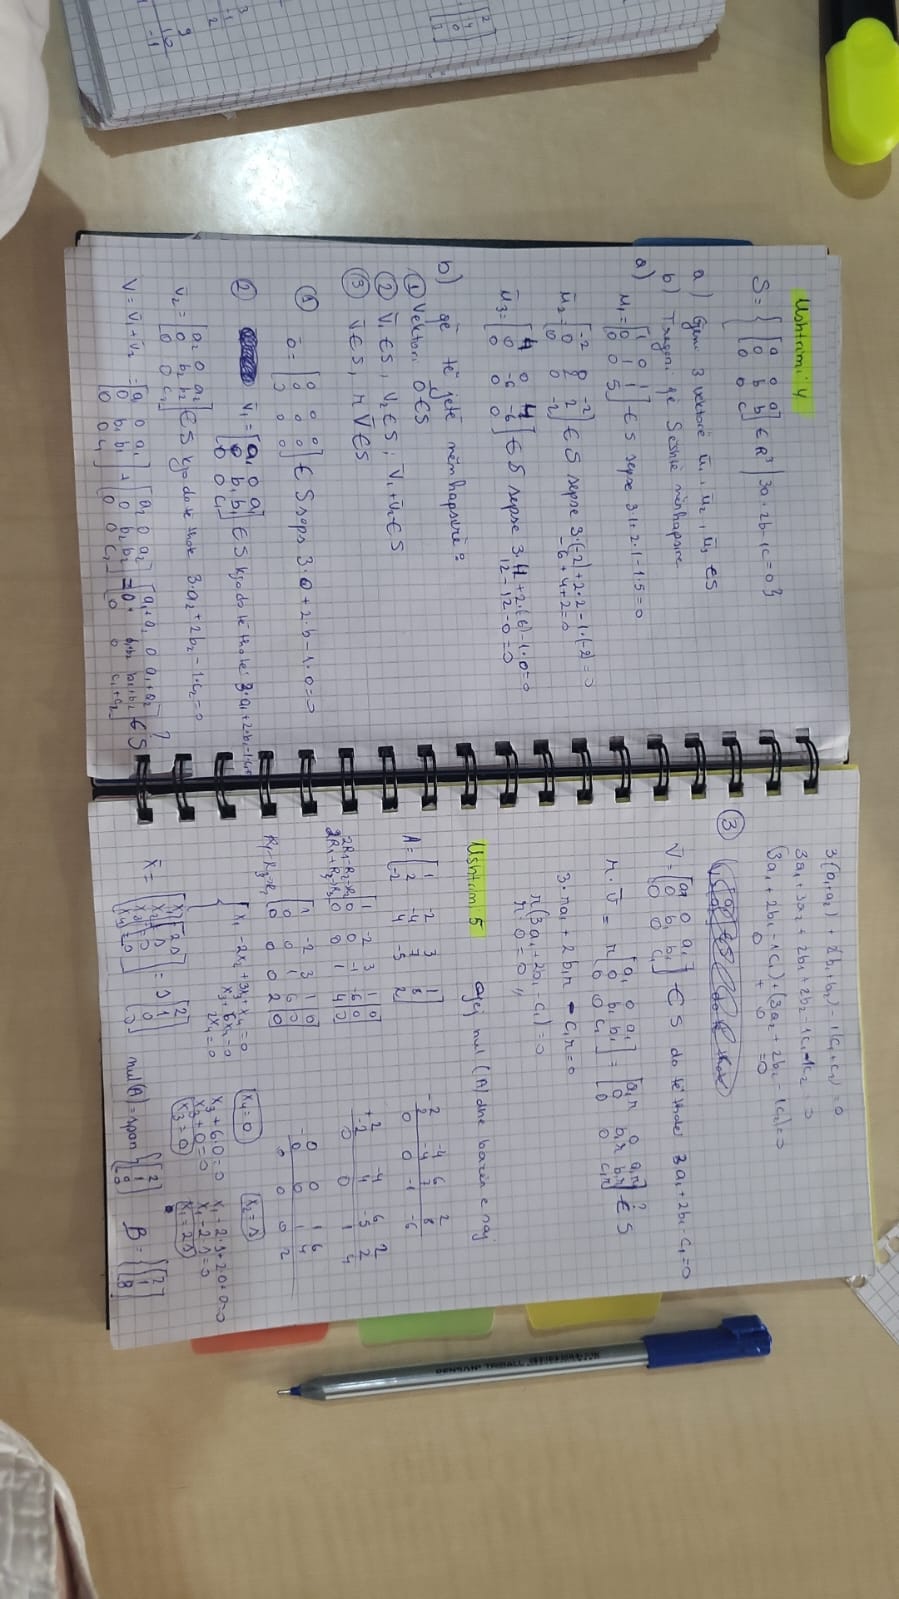 Ushtrimi 4
S = { [a 0 a
0 b b
0 0 c] ∈ R³ | 3a + 2b - 1c = 0 }
a) Gjeni 3 vektorë ū₁, ū₂, ū₃ ∈ S
b) Tregoni që S është nënhapsirë
a)
ū₁ = [1 0 1
0 1 1
0 0 5] ∈ S sepse 3·1 + 2·1 - 1·5 = 0
ū₂ = [-2 0 -2
0 2 2
0 0 -2] ∈ S sepse 3·(-2) + 2·2 - 1·(-2) = 0
-6 + 4 + 2 = 0
ū₃ = [4 0 4
0 -6 -6
0 0 0] ∈ S sepse 3·4 + 2·(-6) - 1·0 = 0
12 - 12 - 0 = 0
b) që të jetë nënhapsirë:
① Vektori ō ∈ S
② v̄₁ ∈ S, v̄₂ ∈ S, v̄₁ + v̄₂ ∈ S
③ v̄ ∈ S, r v̄ ∈ S
① ō = [0 0 0
0 0 0
0 0 0] ∈ S seps 3·0 + 2·b - 1·0 = 0
② v̄₁ = [a₁ 0 a₁
0 b₁ b₁
0 0 c₁] ∈ S kjo do të thotë: 3·a₁ + 2·b₁ - 1·c₁
v̄₂ = [a₂ 0 a₂
0 b₂ b₂
0 0 c₂] ∈ S kjo do te thote 3·a₂ + 2b₂ - 1·c₂ = 0
V = v̄₁ + v̄₂ = [a₁ 0 a₁
0 b₁ b₁
0 0 c₁] + [a₂ 0 a₂
0 b₂ b₂
0 0 c₂] = [a₁+a₂ 0 a₁+a₂
0 b₁+b₂ b₁+b₂
0 0 c₁+c₂] ∈ S ?
3(a₁+a₂) + 2(b₁+b₂) - 1(c₁+c₂) = 0
3a₁ + 3a₂ + 2b₁ + 2b₂ - 1c₁ - 1c₂ = 0
(3a₁ + 2b₁ - 1c₁) + (3a₂ + 2b₂ - 1c₂) = 0
0 + 0 = 0
③
V̄ = [a₁ 0 a₁
0 b₁ b₁
0 0 c₁] ∈ S do të thotë 3a₁ + 2b₁ - c₁ = 0
r · v̄ = r [a₁ 0 a₁
0 b₁ b₁
0 0 c₁] = [a₁r 0 a₁r
0 b₁r b₁r
0 0 c₁r] ∈ S ?
3·ra₁ + 2b₁r - c₁r = 0
r(3a₁ + 2b₁ - c₁) = 0
r · 0 = 0 //
Ushtrimi 5 Gjej nul (A) dhe bazën e saj
A = [1 -2 3 1
2 -4 7 8
-2 4 -5 2]
-2 -4 6 2
2 -4 7 8
0 0 -1 -6
2R₁-R₂→R₂
2R₁+R₃→R₃
[1 -2 3 1 | 0
0 0 -1 -6 | 0
0 0 1 4 | 0]
+2 -4 6 2
-2 4 -5 2
0 0 1 4
R₂-R₃→R₃
[1 -2 3 1 | 0
0 0 1 6 | 0
0 0 0 2 | 0]
-0 0 1 6
0 0 1 4
0 0 0 2
{ x₁ - 2x₂ + 3x₃ + x₄ = 0
x₃ + 6x₄ = 0
2x₄ = 0
x₄ = 0
x₃ + 6·0 = 0
x₃ + 0 = 0
x₃ = 0
x₂ = s
x₁ - 2·s + 2·0 + 0 = 0
x₁ - 2·s = 0
x₁ = 2s
x̄ = [x₁
x₂
x₃
x₄] = [2s
s
0
0] = s [2
1
0
0]
nul(A) = span { [2
1
0
0]
B = { [2
1